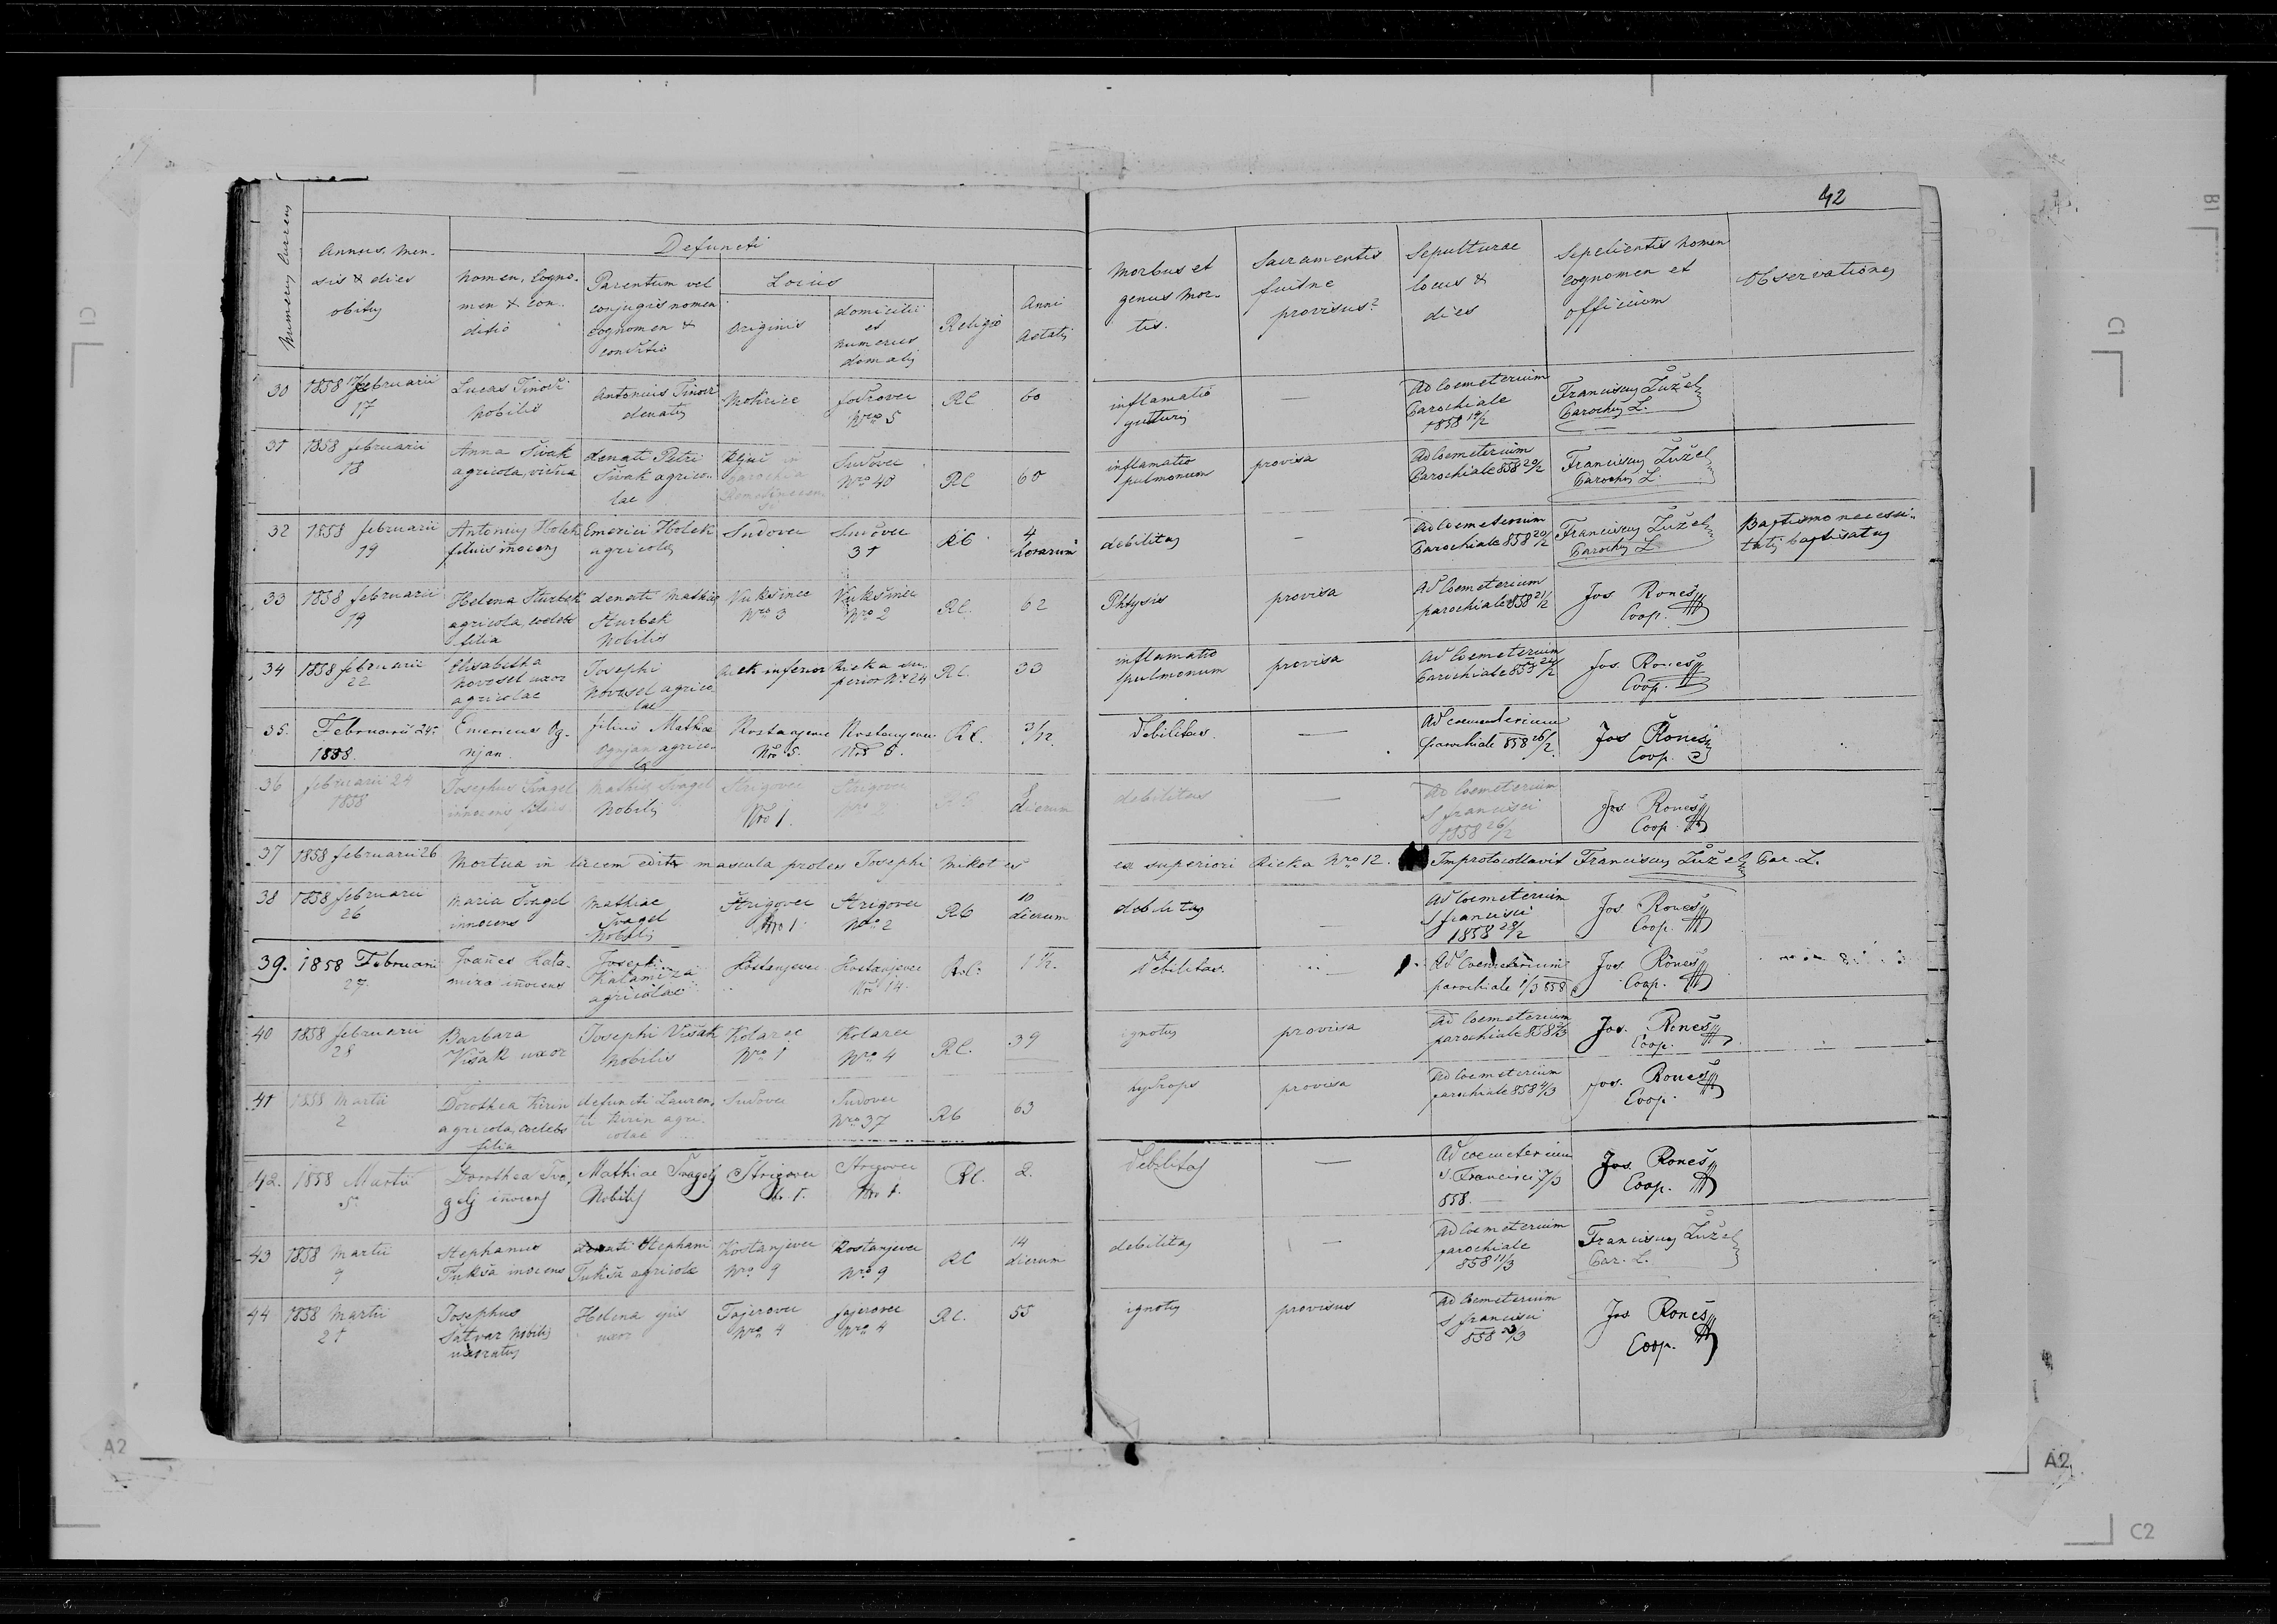 42
Numerus currens
Annus, men-
sis & dies
obitus
Defuncti
Nomen, cogno-
men & con-
ditio
Parentum vel
conjugis nomen
cognomen &
conditio
Locus
originis
domicilii
et
numerus
domus
Religio
Anni
Aetatis
Morbus et
genus mor-
tis.
Sacramentis
fuitne
provisus?
Sepulturae
locus &
dies
Sepelientis nomen
cognomen et
officium
Observationes
30 1858 Februarii
17
Lucas
Nobilis
Antonius
denatus
Mokrice
Nro 5
RC
60
inflamatio
gutturis
—
Ad Coemeterium
Parochiale
1858 19/2
Franciscus Žužel
Parochus L.
31 1858 februarii
18
Anna Sivak
agricola, vidua
denati Petri
Sivak agrico-
lae
Ključ
Parochia
Sudovec
Nro 40
RC
60
inflamatio
pulmonum
provisa
Ad Coemeterium
Parochiale 858 20/2
Franciscus Žužel
Parochus L.
32 1858 februarii
19
Antonius Holek
filius inocens
Emerici Holek
agricolae
Sudovec
Sudovec
31
RC
4
horarum
debilitas
—
Ad Coemeterium
Parochiale 858 20/2
Franciscus Žužel
Parochus L.
Baptismo necessi-
tatis baptisatus
33 1858 februarii
19
Helena Sturbek
agricola, coelebs
filia
denati Mathiae
Sturbek
Nobilis
Vukšinec
Nro 3
Vukšinec
Nro 2
RC.
62
Phtysis
provisa
Ad Coemeterium
parochiale 858 21/2
Jos Roneš
Coop.
34 1858 februarii
22
Elisabetha
Novosel uxor
agricolae
Josephi
Novosel agrico
lae
inferior
Rieka su-
perior Nr 24
RC.
33
inflamatio
pulmonum
provisa
Ad Coemeterium
Parochiale 858 24/2
Jos. Roneš
Coop.
35. Februarii 24.
1858.
Emericus Og-
njan.
filius Mathiae
Ognjan agrico-
lae
Kostanjevec
Nro 5.
Kostanjevec
Nro 5.
RC.
3/12.
Debilitas.
—
Ad coementerium
parochiale 858 26/2.
Jos Roneš
Coop.
36 februarii 24
1858
Josephus Švagel
innocens filius
Mathiae Švagel
Nobilis
Strigovec
Nro 1.
Strigovec
Nro 2
RC
8
dierum
debilitas
—
Ad Coemeterium
S francisci
1858 26/2
Jos Roneš
Coop.
37 1858 februarii 26 Mortua in lucem edita mascula proles Josephi Mikot es
ex superiori Rieka Nro 12. Improtocollavit Franciscus Žužel Par. L.
38 1858 februarii
26
Maria Švagel
innocens
Mathiae
Švagel
Nobilis
Strigovec
Nro 1
Strigovec
Nro 2
RC
10
dierum
debilitas
—
Ad Coemeterium
S francisci
1858 28/2
Jos. Roneš
Coop.
39. 1858 Februarii
27
Joañes Kala-
mira iñocens
Josephi
Kalamiza
agricolae
Kostanjevec
Kostanjevec
Nro 14.
R.C.
1 1/2.
Debilitas.
Ad Coemeterium
parochiale 1/3 858
Jos. Roneš
Coop.
40 1858 februarii
28
Barbara
Višak uxor
Josephi Višak
Nobilis
Kolarec
Nro 1
Kolarec
Nro 4
RC.
39
ignotus
provisa
Ad Coemeterium
parochiale 858 2/3
Jos. Roneš
Coop.
41 1858 Martii
2
Dorothea Kirin
agricola, coelebs
filia
defuncti Lauren-
tii Kirin agri-
colae
Sudovec
Sudovec
Nro 37
RC
63
hydrops
provisa
Ad Coemeterium
parochiale 858 4/3
Jos. Roneš
Coop.
42. 1858 Martii
5.
Dorothea Šva-
gelj iñocens
Mathiae Švagelj
Nobilis
Štrigovec
Nr. 1.
Strigovec
Nro 1.
RC.
2.
Debilitas
—
Ad coemeterium
S. Francisci 7/3
858.
Jos. Roneš
Coop.
43 1858 Martii
9
Stephanus
Fukša inocens
Stephani
Fukša agricolae
Kostanjevec
Nro 9
Kostanjevec
Nro 9
RC
14
dierum
debilitas
—
Ad Coemeterium
parochiale
858 11/3
Franciscus Žužel
Par. L.
44 1858 Martii
21
Josephus
Šatvar Nobilis
uxoratus
Helena ejus
uxor
Fajerovec
Nro 4
fajerovec
Nro 4
RC.
55
ignotus
provisus
Ad Coemeterium
S francisci
858 23/3
Jos Roneš
Coop.
C1
A2
C1
B1
A2
C2